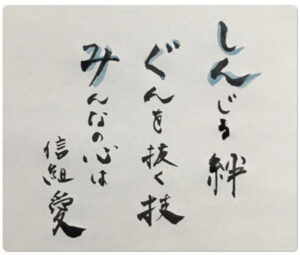 しんじる絆
ぐんを抜く技
みんなの心は
信組愛